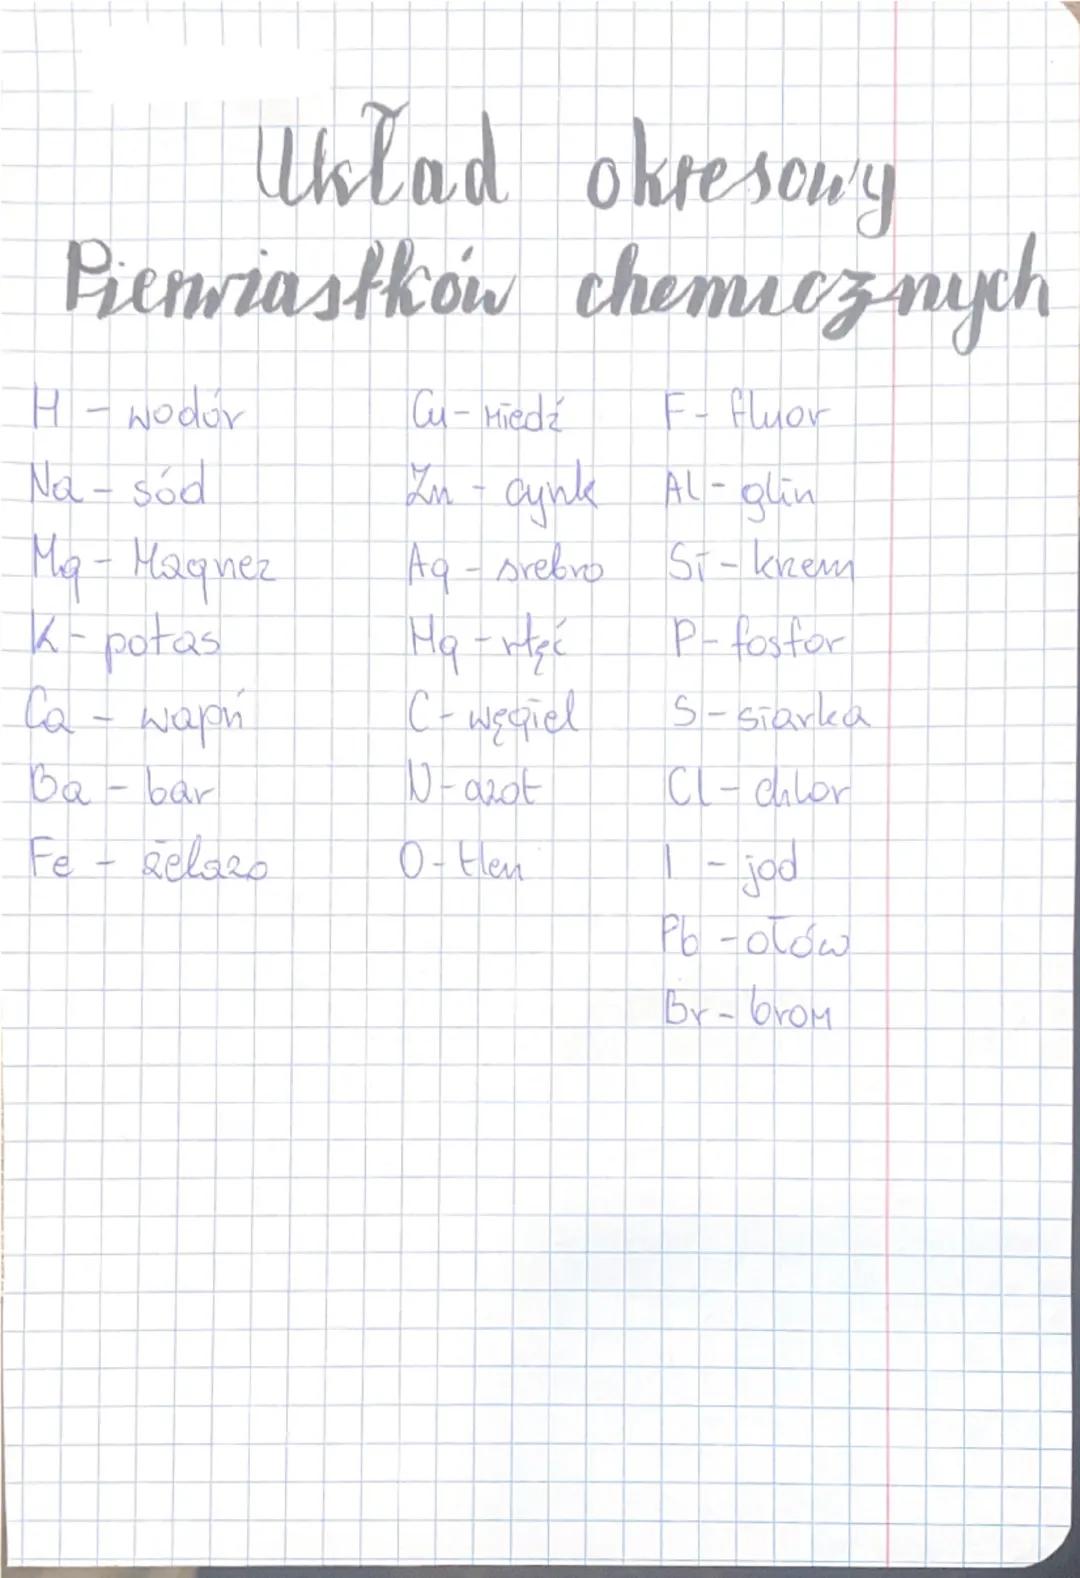 Układ okresowy
Pierwiastków chemicznych
H - wodór
Na - sód
Mg - Magnez
K - potas
Ca - wapń
Ba - bar
Fe - żelazo
Cu - Miedź
Zn - cynk
Ag - srebro
Hg - rtęć
C - węgiel
N - azot
O - tlen
F - fluor
Al - glin
Si - krzem
P - fosfor
S - siarka
Cl - chlor
I - jod
Pb - ołów
Br - brom